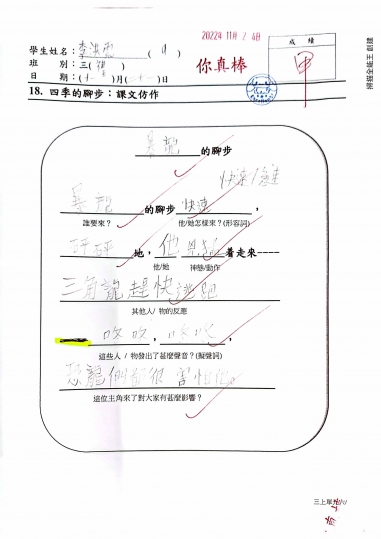 2022年 11月 2 4日
學生姓名：李洪
班　　別：三（
日　　期：（十一）月（二十一）日
你真棒
成績
甲
掃描全能王 創建
18. 四季的腳步：課文仿作
暴龍的腳步
快速/急速
暴龍的腳步快速，
誰要來？ 他/她怎樣來？(形容詞)
砰砰地，他 着走來----
他/她 神態/動作
三角龍趕快逃跑
其他人/ 物的反應
吹吹，吹吹，
這些人 / 物發出了甚麼聲音？(擬聲詞)
恐龍們都很害怕他。
這位主角來了對大家有甚麼影響？
三上單